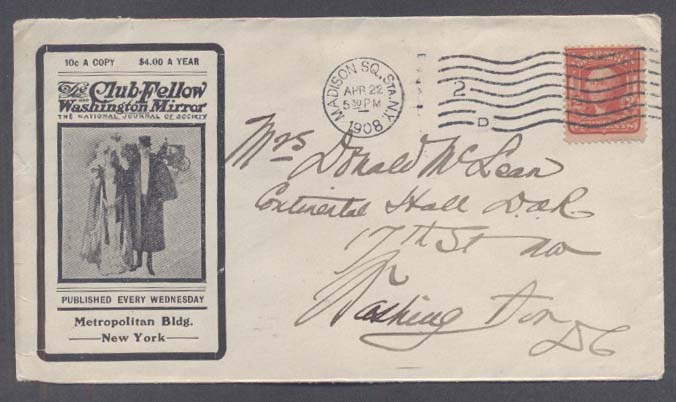 10c A COPY $4.00 A YEAR
The Club-Fellow
AND Washington Mirror
THE NATIONAL JOURNAL OF SOCIETY
PUBLISHED EVERY WEDNESDAY
Metropolitan Bldg.
New York
MADISON SQ. STA. N.Y.
APR 22
5 30 PM
1908
2
D
Mrs Donald McLean
Continental Hall D.A.R.
17th St NW
Washington
DC